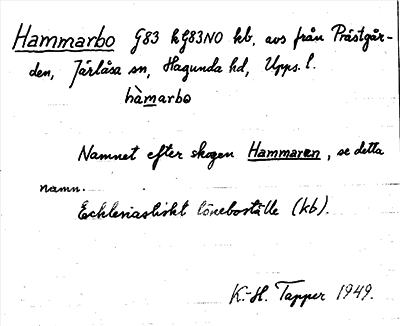 Hammarbo G83 kG83NO kb, avs från Prästgår-
den, Järlåsa sn, Hagunda hd, Upps. l.
hàmarbo
Namnet efter skogen Hammaren, se detta
namn.
Eckleriastiskt löneboställe (kb).
K.-H. Tapper 1949.